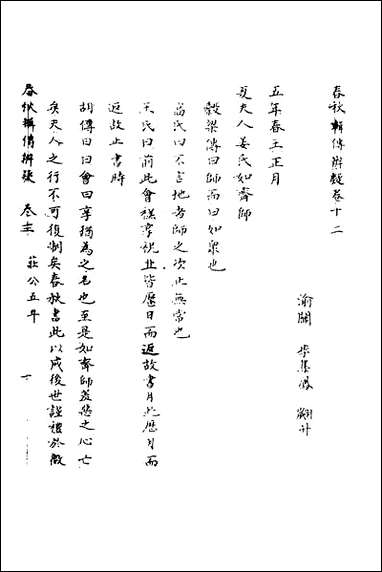 春秋輯傳辨疑卷十二
渝關 李集鳳 翽升
五年春王正月
夏夫人姜氏如齊師
穀梁傳曰師而曰如衆也
高氏曰不言地者師之次止無常也
吳氏曰前此會禚享祝丘皆歷日而返故書月此歷月而
返故止書時
胡傳曰曰會曰享猶為之名也至是如齊師羞惡之心亡
矣夫人之行不可復制矣春秋書此以戒後世謹禮於微
春秋輯傳辨疑 卷十二 莊公五年 一